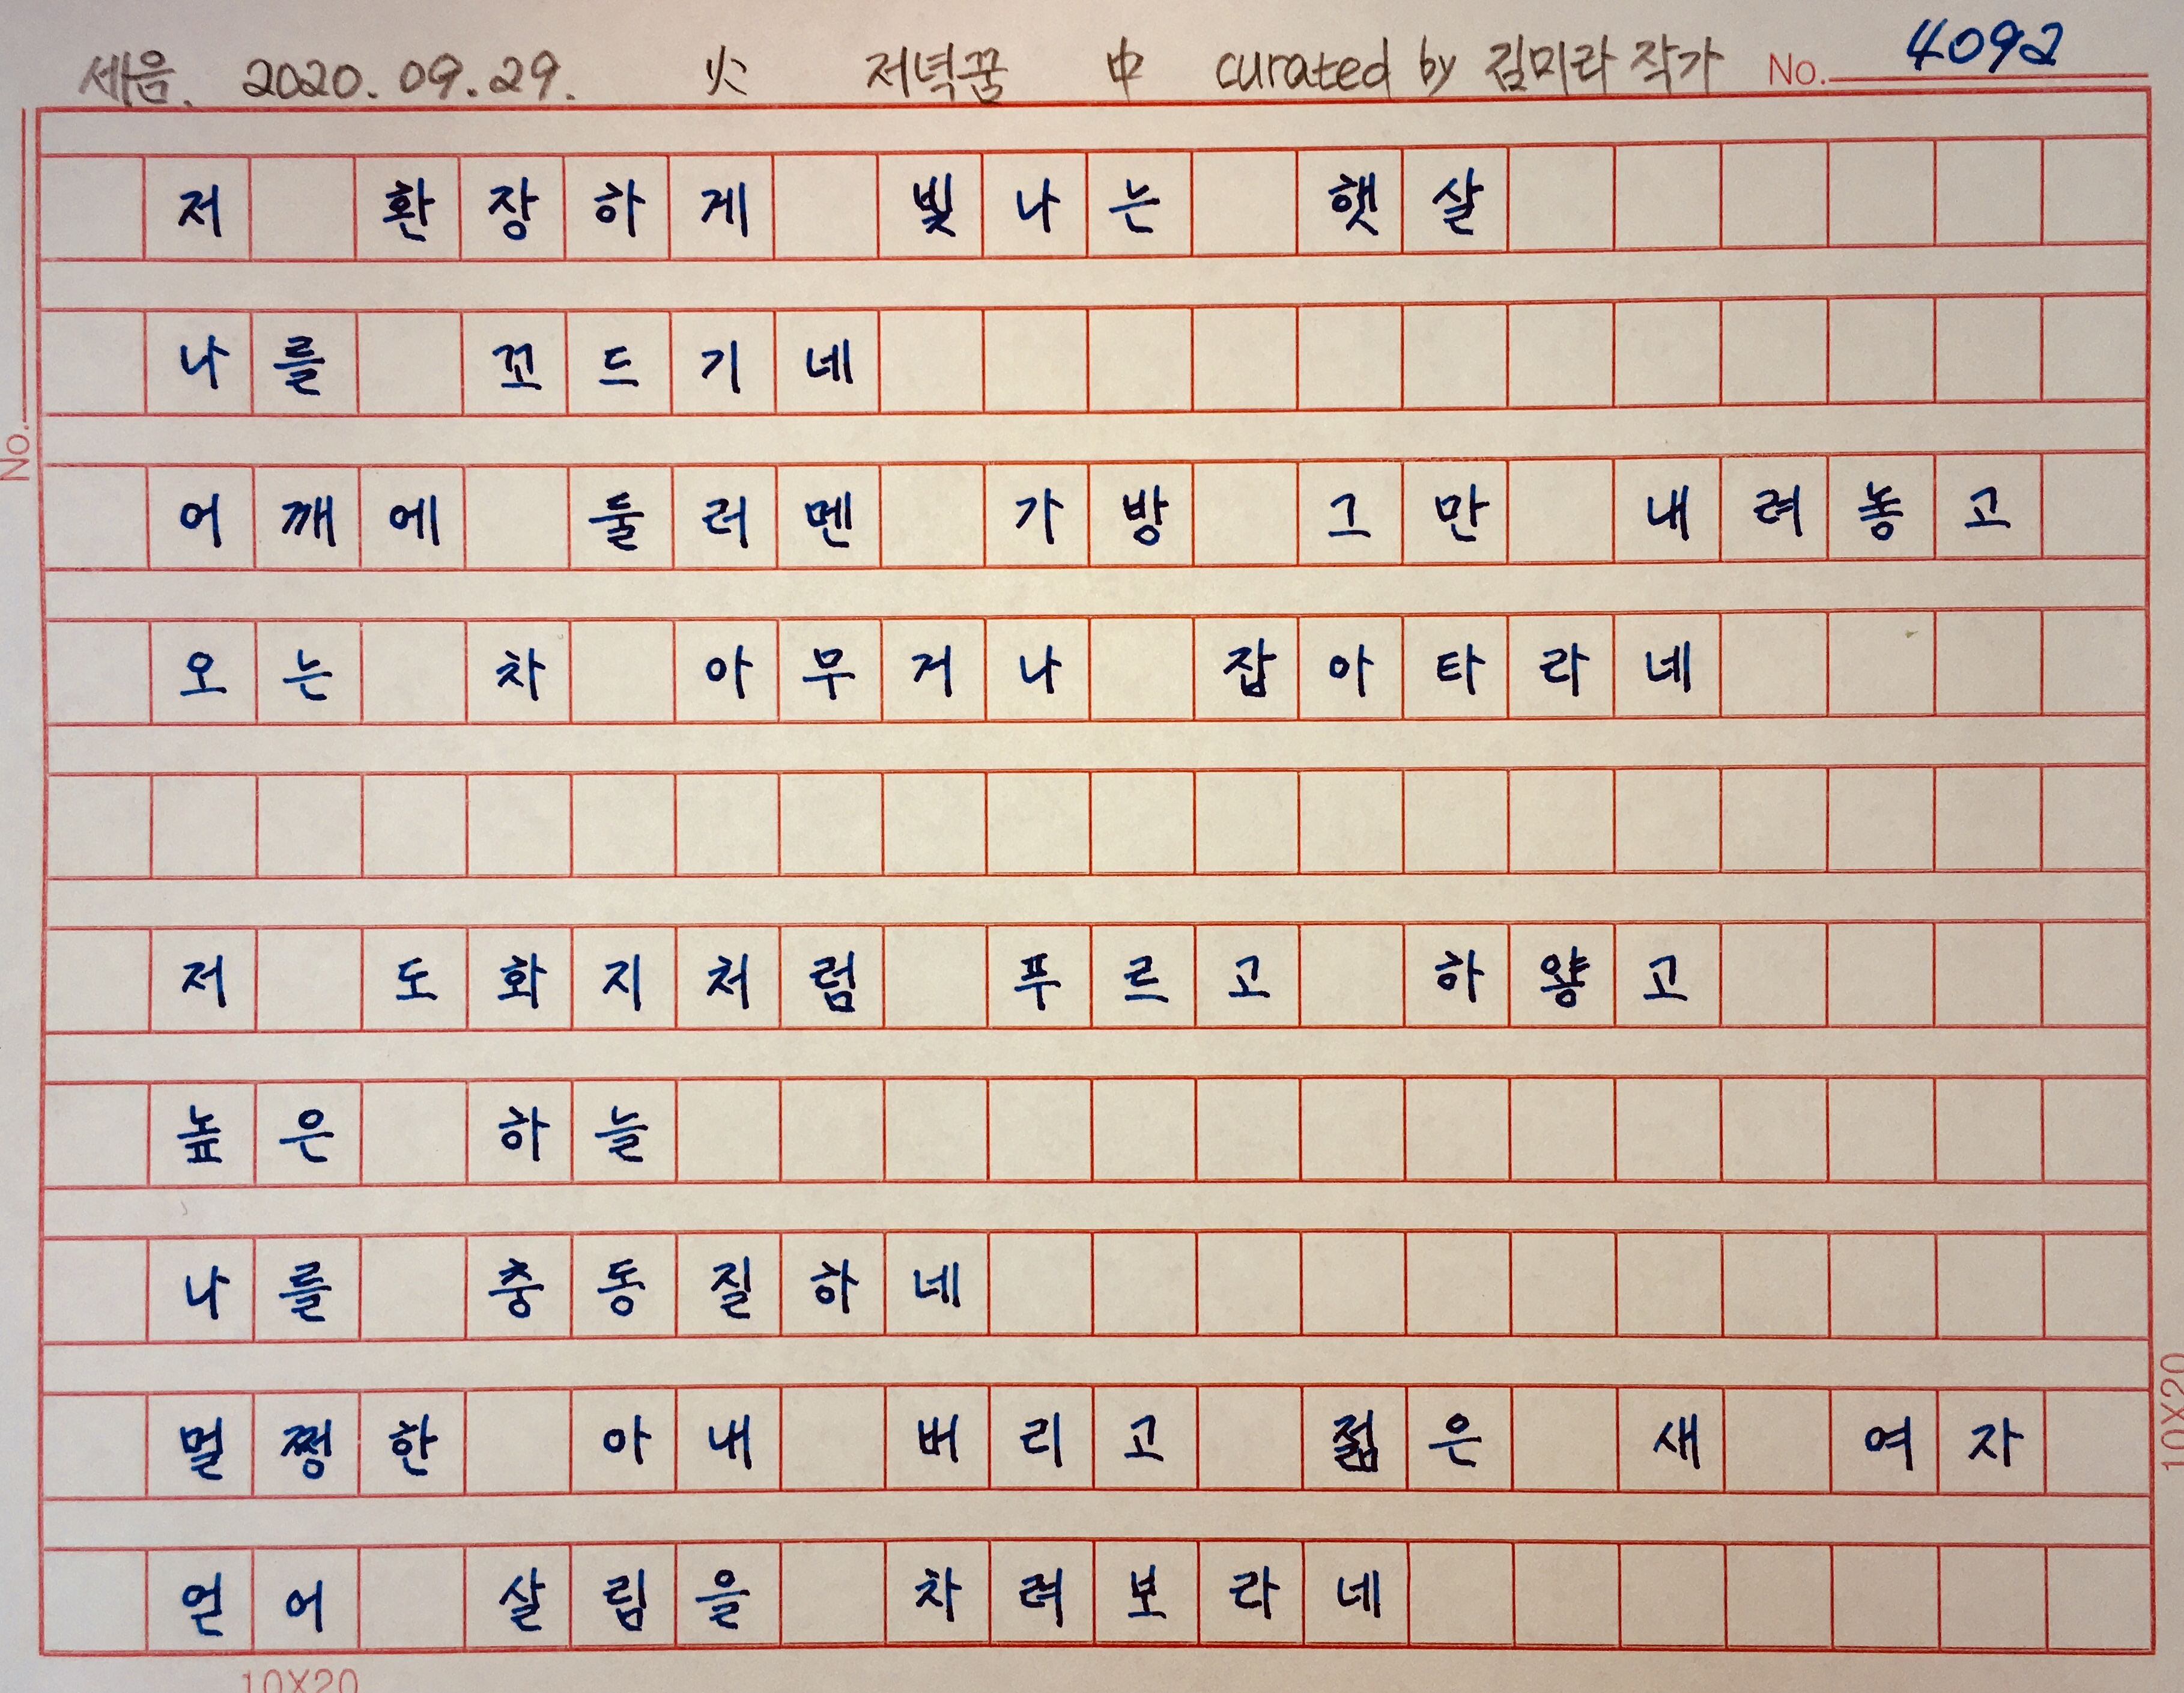 세음. 2020. 09. 29. 火 저녁꿈 中 curated by 김미라 작가 No. 4092
저 환장하게 빛나는 햇살
나를 꼬드기네
어깨에 둘러멘 가방 그만 내려놓고
No.
오는 차 아무거나 잡아타라네
저 도화지처럼 푸르고 하얗고
높은 하늘
나를 충동질하네
멀쩡한 아내 버리고 젊은 새 여자
10X20
얻어 살림을 차려보라네
10X20